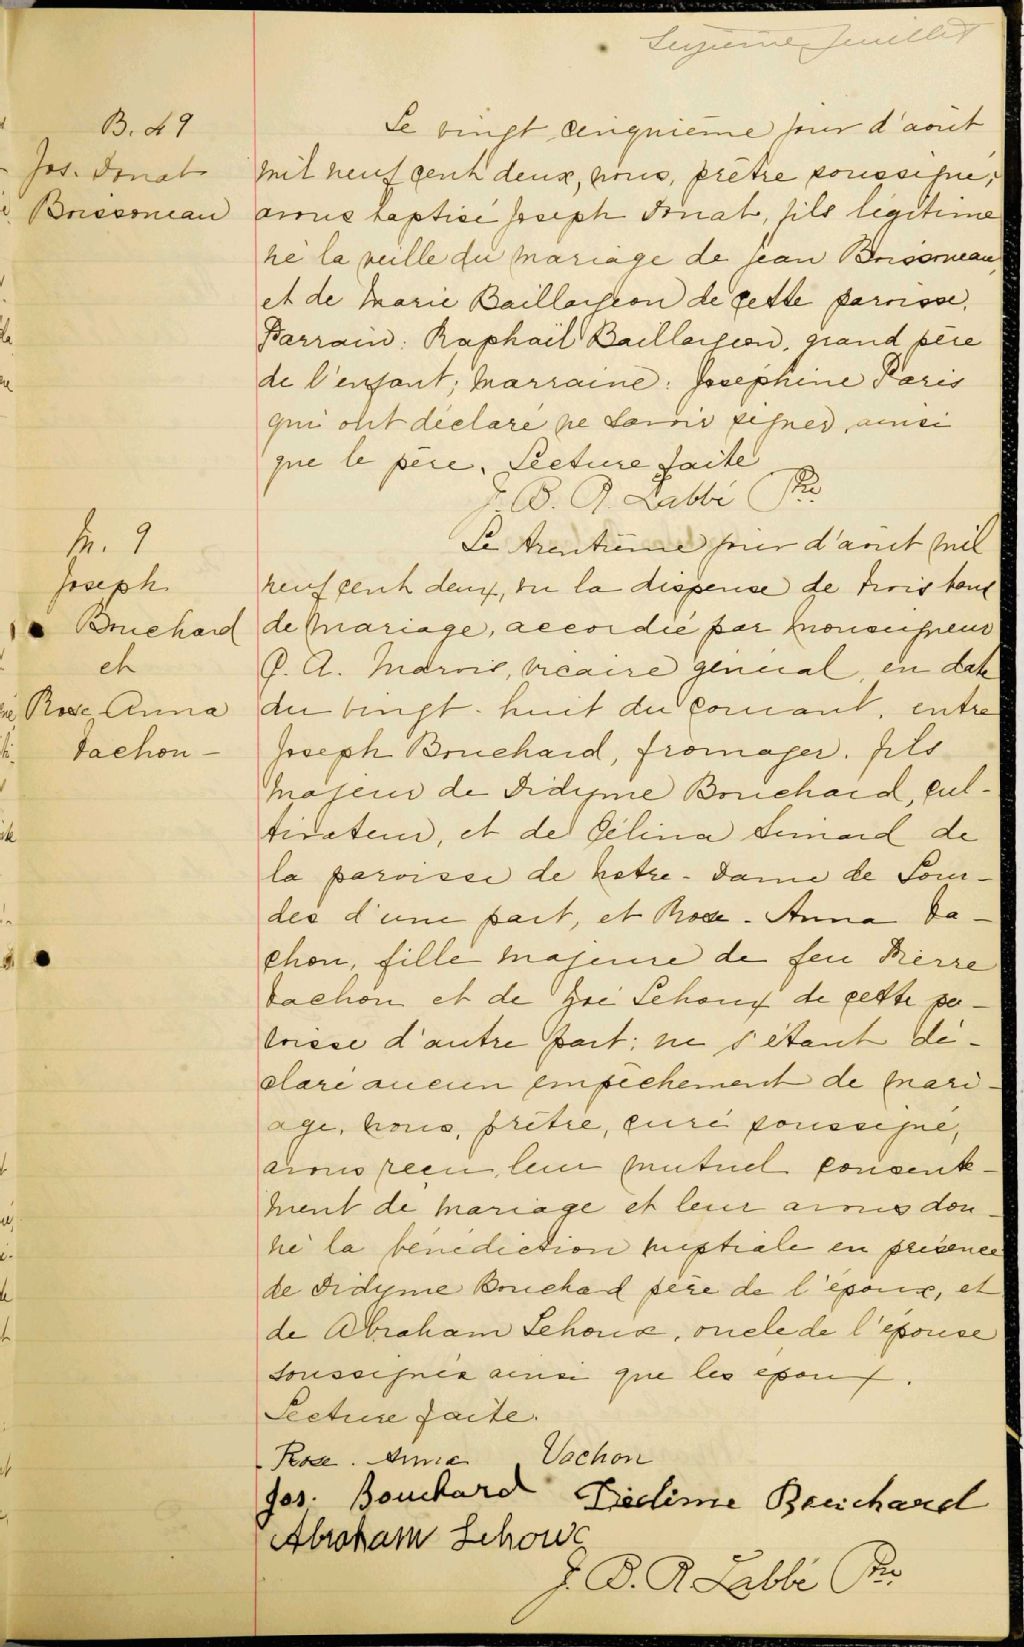 Seizième feuillet
B. 49
Jos. Donat
Boissoneau
Le vingt cinquième jour d'août
mil neuf cent deux, nous, prêtre soussigné,
avons baptisé Joseph Donat, fils légitime
né la veille du mariage de Jean Boissoneau,
et de Marie Baillargeon de cette paroisse.
Parrain: Raphaël Baillargeon, grand père
de l'enfant; Marraine: Joséphine Paris
qui ont déclaré ne savoir signer, ainsi
que le père. Lecture faite
J. B. R. Labbé Ptre
M. 9
Joseph
Bouchard
et
Rose Anna
Vachon -
Le trentième jour d'août mil
neuf cent deux, vu la dispense de trois bans
de mariage, accordée par Monseigneur
C. A. Marois, vicaire général, en date
du vingt-huit du courant, entre
Joseph Bouchard, fromager, fils
majeur de Didyme Bouchard, cul-
tivateur, et de Célina Simard de
la paroisse de Notre-Dame de Lour-
des d'une part, et Rose-Anna Va-
chon, fille majeure de feu Pierre
Vachon et de Zoé Lehoux de cette pa-
roisse d'autre part; ne s'étant dé-
claré aucun empêchement de mari-
age, nous, prêtre, curé soussigné,
avons reçu leur mutuel consente-
ment de mariage et leur avons don-
né la bénédiction nuptiale en présence
de Didyme Bouchard père de l'époux, et
de Abraham Lehoux, oncle de l'épouse
soussignés ainsi que les époux.
Lecture faite.
Rose. Anna Vachon
Jos. Bouchard Didime Bouchard
Abraham Lehoux
J. B. R. Labbé Ptre